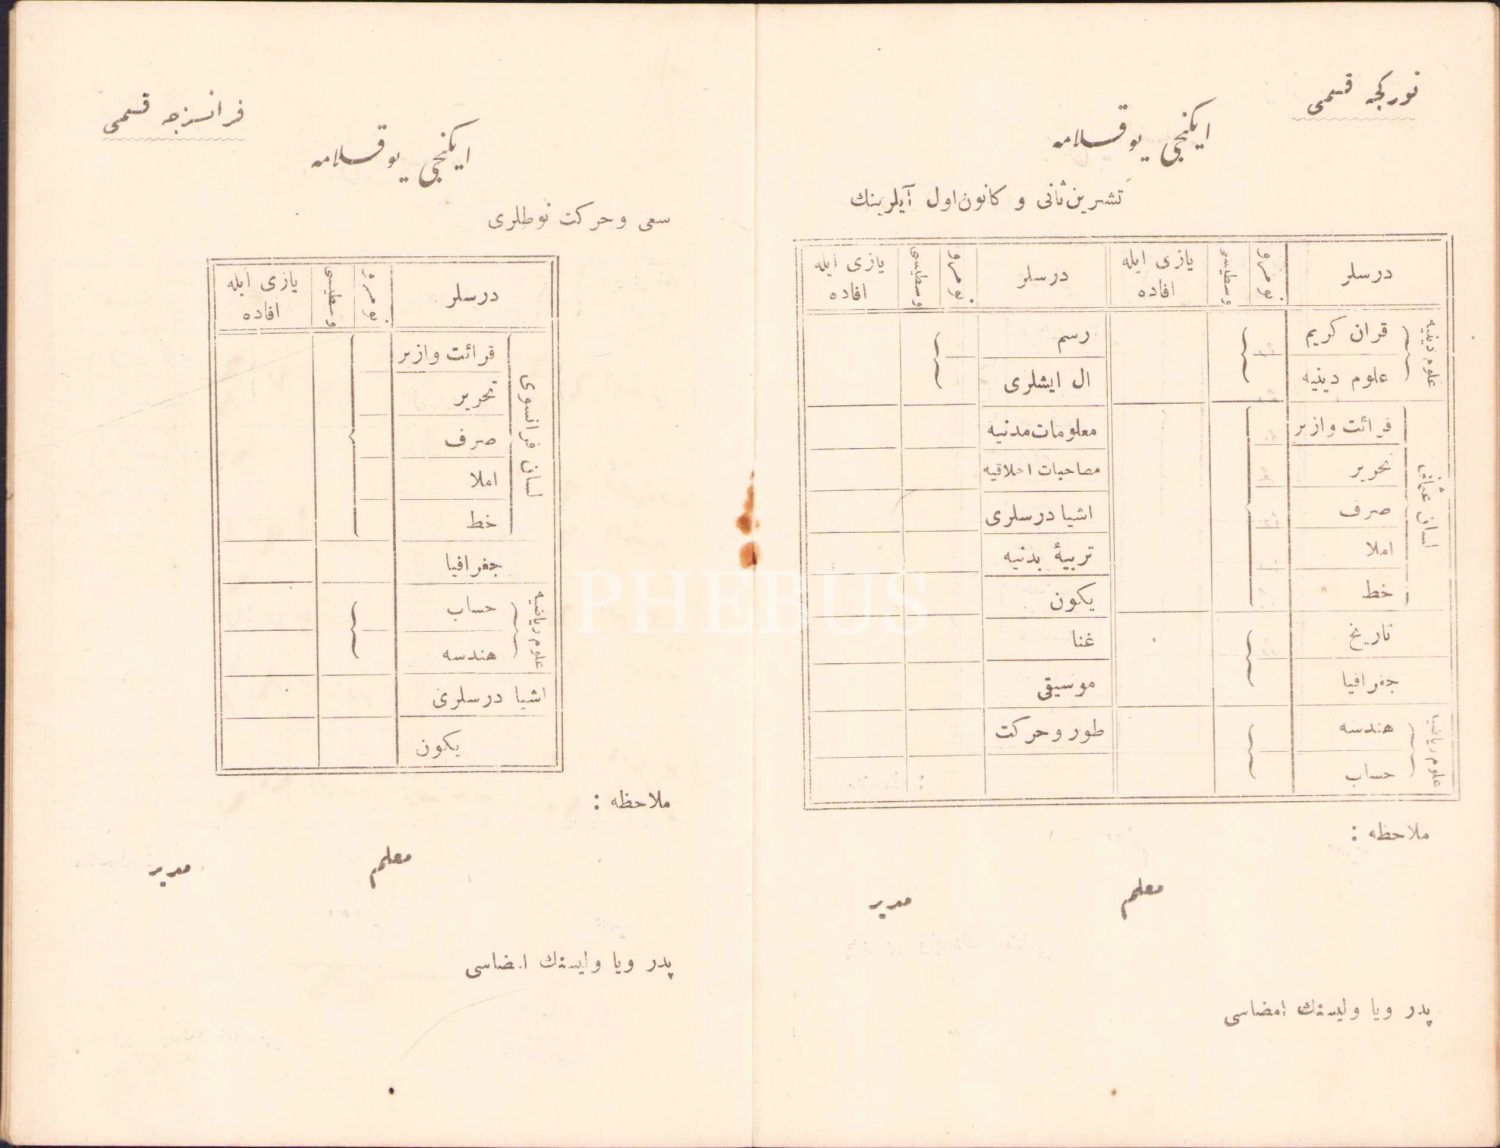 تورکجه قسمی
ایکنجی یوقلامه
تشرین‌ثانی و کانون‌اول آیلرینك
درسلر
نومرو
وسطیسی
یازی ایله افاده
درسلر
نومرو
وسطیسی
یازی ایله افاده
علوم دینیه
قران کریم
علوم دینیه
لسان عثمانی
قرائت وازبر
تحریر
صرف
املا
خط
تاریخ
جغرافیا
علوم ریاضیه
هندسه
حساب
رسم
ال ایشلری
معلومات‌مدنیه
مصاحبات اخلاقیه
اشیا درسلری
تربیهٔ بدنیه
یکون
غنا
موسیقی
طور وحرکت
ملاحظه :
معلم
مدیر
پدر ویا ولیسنك امضاسی
فرانسزجه قسمی
ایکنجی یوقلامه
سعی وحرکت نوطلری
درسلر
نومرو
وسطیسی
یازی ایله افاده
لسان فرانسوی
قرائت وازبر
تحریر
صرف
املا
خط
جغرافیا
علوم ریاضیه
حساب
هندسه
اشیا درسلری
یکون
ملاحظه :
معلم
مدیر
پدر ویا ولیسنك امضاسی
PHEBUS